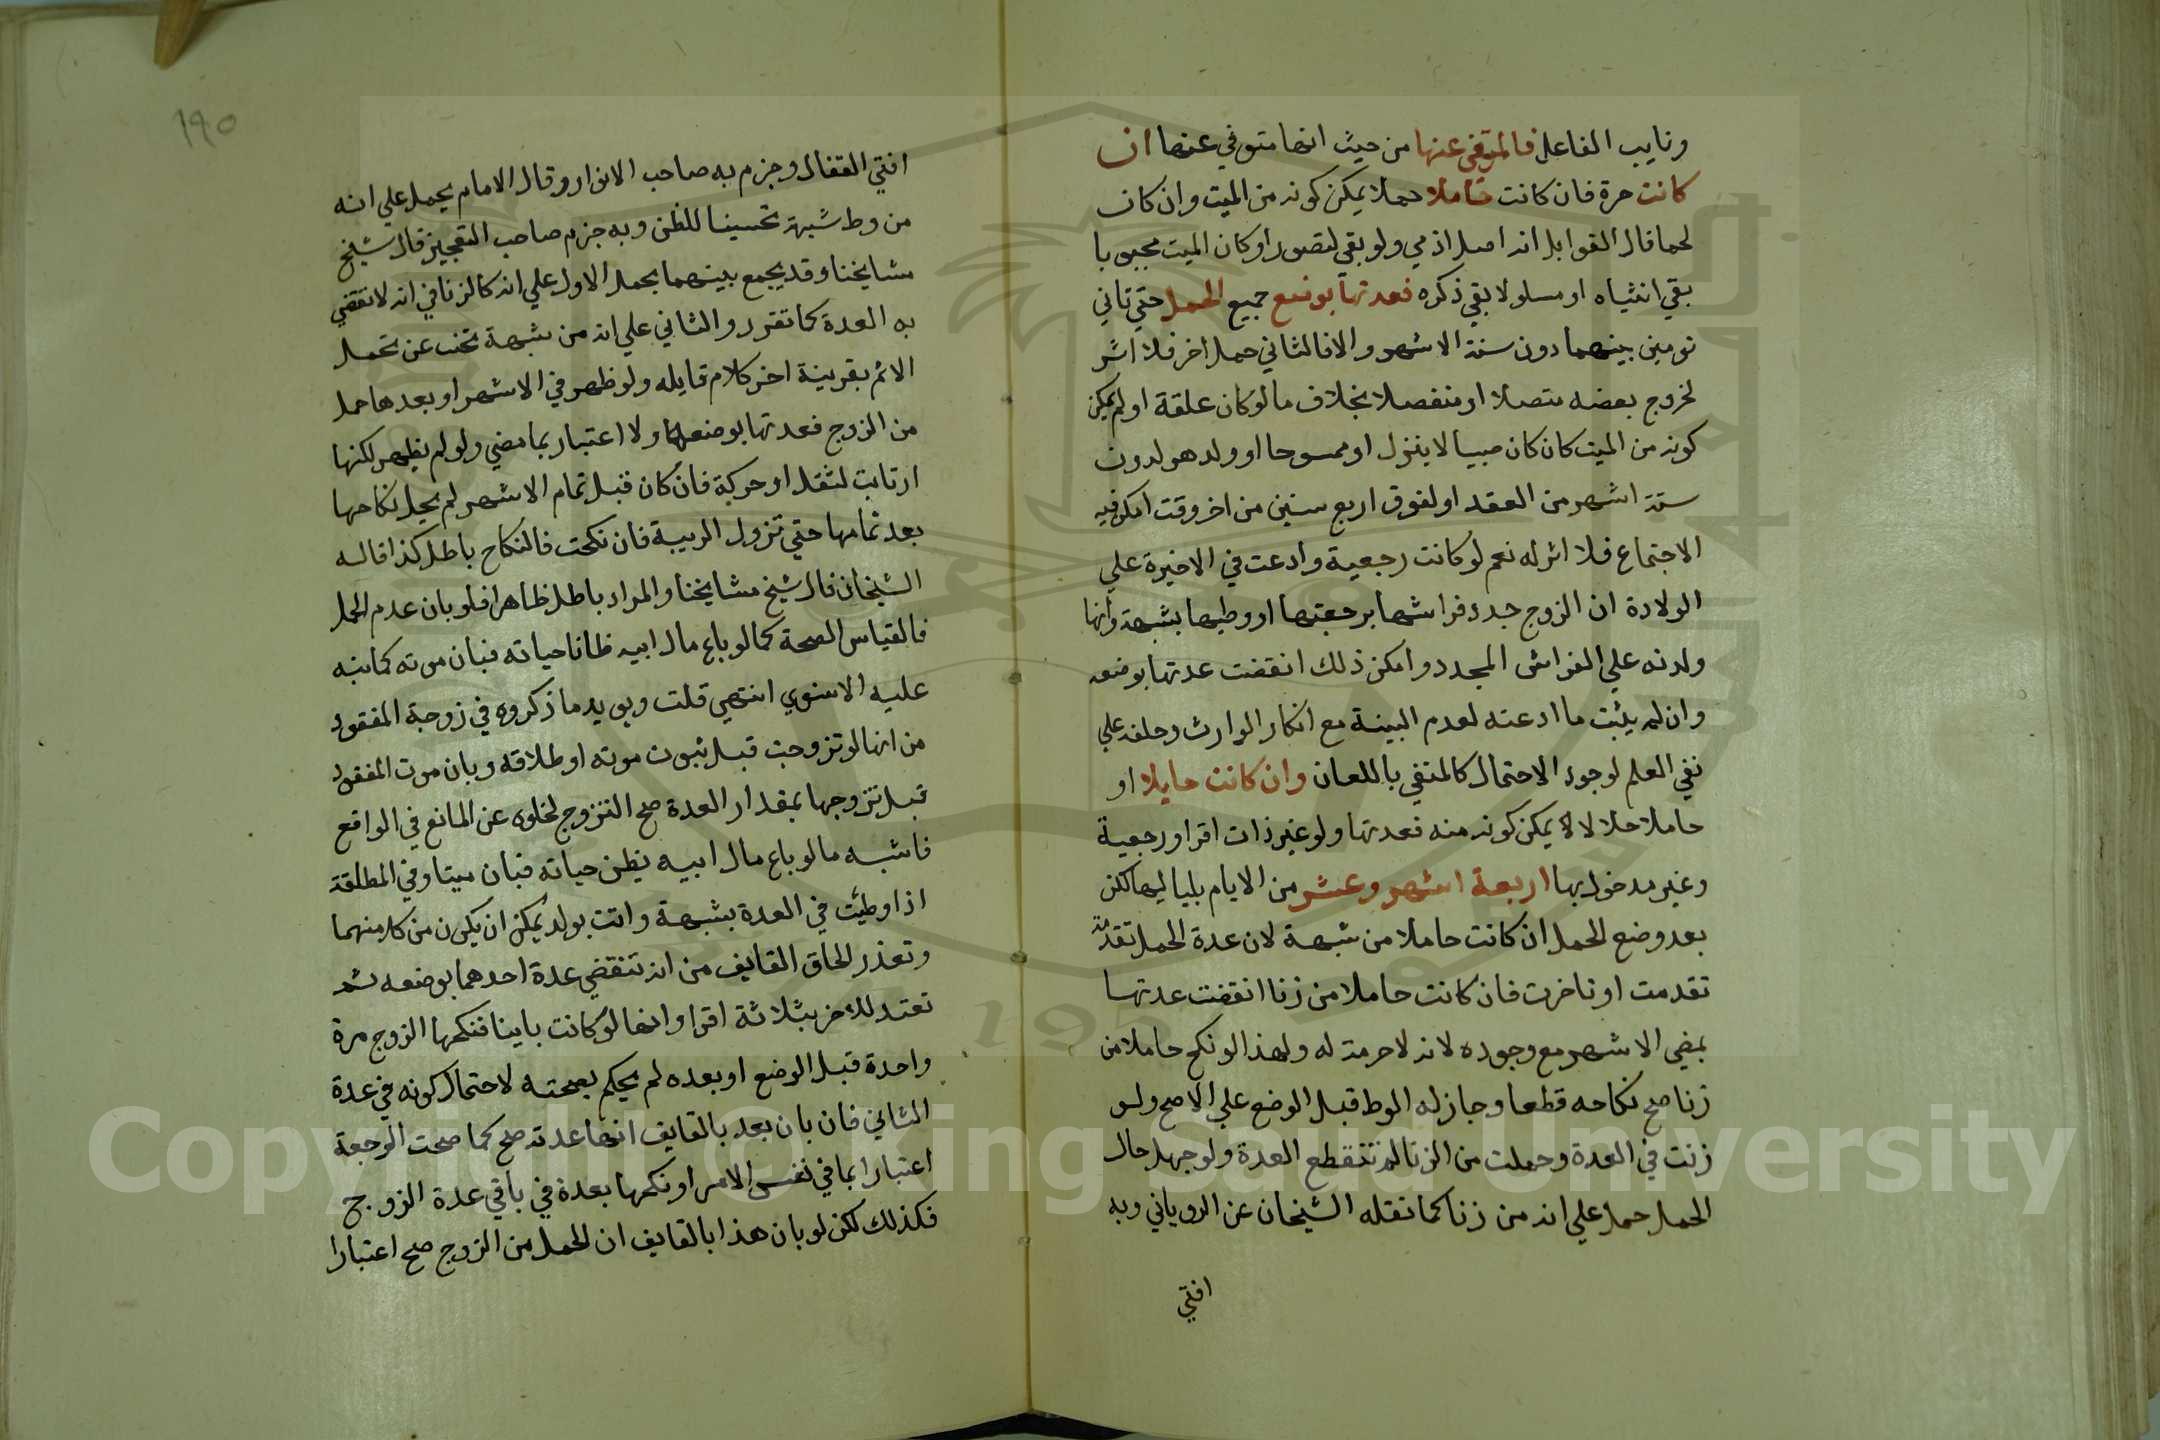 ونايب الفاعل فالمتوفي عنها من حيث انها متوفي عنها ان
كانت حرة فان كانت حاملا حملا يمكن كونه من الميت وان كان
لحما قال القوابل انه اصل ادمي ولو بقي لتصور او كان الميت مجبوبا
بقي انثياه او مسلولا بقي ذكره فعدتها بوضع جميع الحمل حتي ثاني
تومين بينهما دون ستة الاشهر والا فالثاني حمل اخر فلا اثر
لخروج بعضه متصلا او منفصلا بخلاف ما لو كان علقة او لم يمكن
كونه من الميت كان كان صبيا لا ينزل او ممسوحا او ولد هو لدون
ستة اشهر من العقد او لفوق اربع سنين من اخر وقت امكن فيه
الاجتماع فلا اثر له نعم لو كانت رجعية وادعت في الاخيرة علي
الولادة ان الزوج جدد فراشها برجعتها او وطيها بشبهة وانها
ولدته علي الفراش المجدد وامكن ذلك انقضت عدتها بوضعه
وان لم يثبت ما ادعته لعدم البينة مع انكار الوارث وحلفه علي
نفي العلم لوجود الاحتمال كالمنفي باللعان وان كانت حايلا او
حاملا حملا لا يمكن كونه منه فعدتها ولو غير ذات اقرا ورجعية
وغير مدخول بها اربعة اشهر وعشر من الايام بلياليها لكن
بعد وضع الحمل ان كانت حاملا من شبهة لان عدة الحمل تقدم
تقدمت او تاخرت فان كانت حاملا من زنا انقضت عدتها
بمضي الاشهر مع وجوده لانه لا حرمة له ولهذا لو نكح حاملا من
زنا صح نكاحه قطعا وجاز له الوط قبل الوضع علي الاصح ولو
زنت في العدة وحملت من الزنا لم تنقطع العدة ولو جهل حال
الحمل حمل علي انه من زنا كما نقله الشيخان عن الروياني وبه
افتي
١٩٥
افتي القفال وجزم به صاحب الانوار وقال الامام يحمل علي انه
من وط شبهة تحسينا للظن وبه جزم صاحب التعجيز قال شيخ
مشايخنا وقد يجمع بينهما بحمل الاول علي انه كالزنا في انه لا تنقضي
به العدة كما تقرر والثاني علي انه من شبهة تجنبا عن تحمل
الاثم بقرينة اخر كلام قايله ولو ظهر في الاشهر او بعدها حمل
من الزوج فعدتها بوضعه ولا اعتبار بما مضي ولو لم يظهر لكنها
ارتابت لثقل او حركة فان كان قبل تمام الاشهر لم يحل نكاحها
بعد تمامها حتي تزول الريبة فان نكحت فالنكاح باطل كذا قاله
الشيخان قال شيخ مشايخنا والمراد باطل ظاهرا فلو بان عدم الحمل
فالقياس الصحة كما لو باع مال ابيه ظانا حياته فبان موته كما نبه
عليه الاسنوي انتهي قلت ويويد ما ذكروه في زوجة المفقود
من انها لو تزوجت قبل ثبوت موته او طلاقه وبان موت المفقود
قبل تزوجها بمقدار العدة صح التزوج لخلوه عن المانع في الواقع
فاشبه ما لو باع مال ابيه يظن حياته فبان ميتا وفي المطلقة
اذا وطئت في العدة بشبهة واتت بولد يمكن ان يكون من كل منهما
وتعذر الحاق القايف من انه تنقضي عدة احدهما بوضعه ثم
تعتد للاخر بثلاثة اقرا وانها لو كانت باينا فنكحها الزوج مرة
واحدة قبل الوضع او بعده لم يحكم بصحته لاحتمال كونه في عدة
الثاني فان بان بعد بالقايف انها عدته صح كما صحت الرجعة
اعتبارا بما في نفس الامر او نكحها بعدة في باقي عدة الزوج
فكذلك لكن لو بان هذا بالقايف ان الحمل من الزوج صح اعتبارا
Copyright © King Saud University